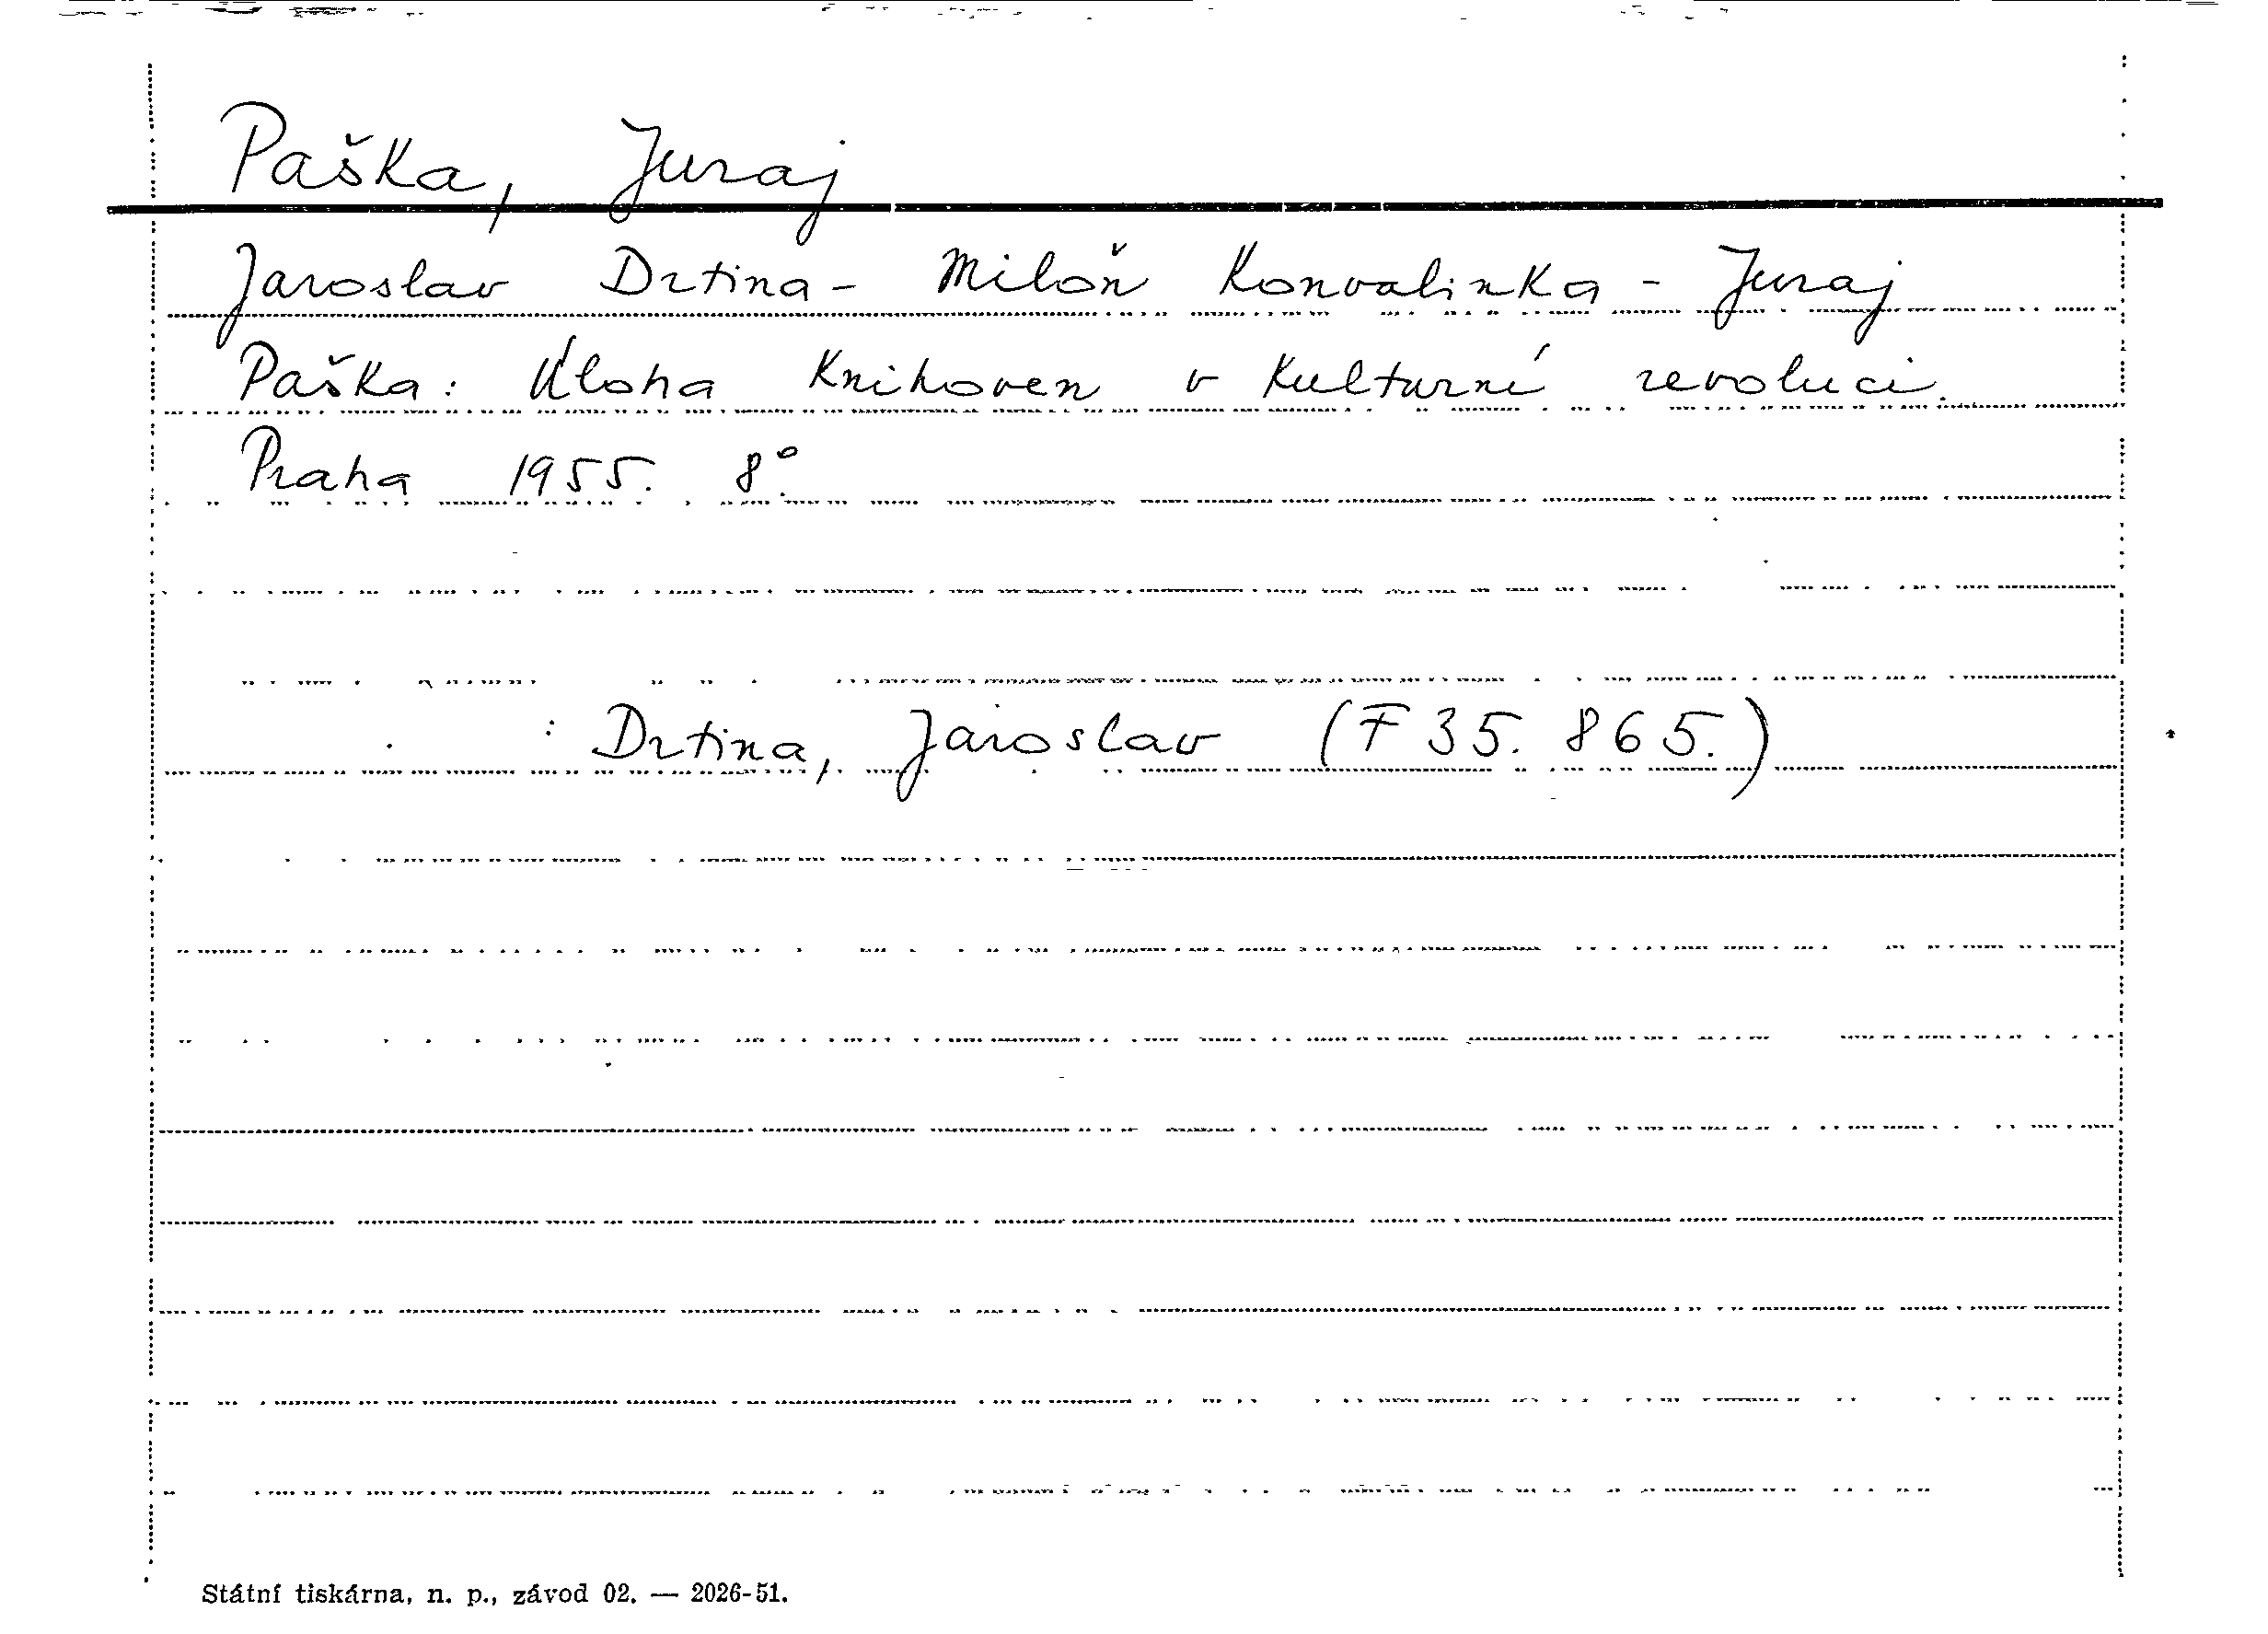 Paška, Juraj
Jaroslav Drtina - Miloň Konvalinka - Juraj
Paška: Úloha knihoven v kulturní revoluci.
Praha 1955. 8°.
: Drtina, Jaroslav (F 35. 865.)
Státní tiskárna, n. p., závod 02. — 2026-51.